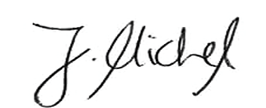 J. Michel